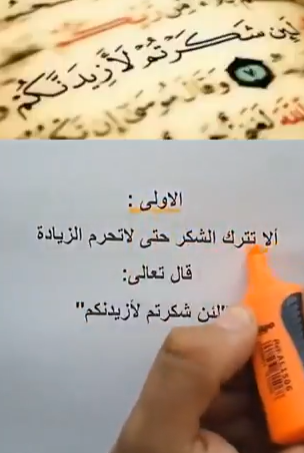 لَئِن شَكَرْتُمْ لَأَزِيدَنَّكُمْ
٧
وَقَالَ مُوسَى إِن تَكْفُرُ
الاولى :
ألا تترك الشكر حتى لاتحرم الزيادة
قال تعالى:
"لئن شكرتم لأزيدنكم"